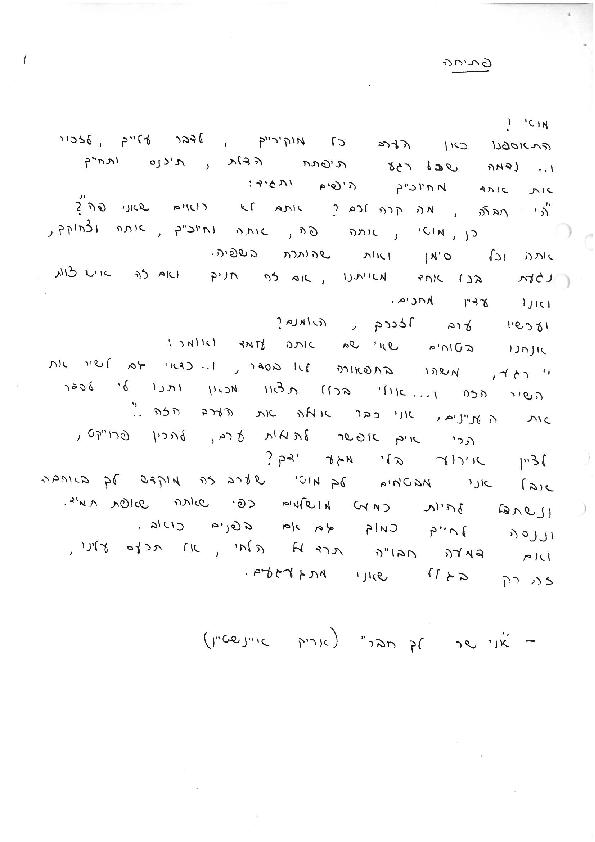 1
פתיחה
מוטי !
התאספנו כאן הערב כל מוקיריך , לדבר עליך , לזכור
ו.. נדמה שבכל רגע תיפתח הדלת , תיכנס ותחייך
את אחד מחיוכיך היפים ותגיד:
"היי חבר'ה , מה קרה לכם ? אתם לא רואים שאני פה?"
כן , מוטי , אתה פה, אתה וחיוכיך , אתה וצחוקך,
אתה וכל סימן ואות שהותרת בשפיה.
נגעת בכל אחד מאיתנו , אם זה חניך ואם זה איש צוות
ואנו עדיין מחכים.
ועכשיו ערב לזכרך , האומנם?
אנחנו בטוחים שאי שם אתה עומד ואומר:
"רגע, משהו בתפאורה לא בסדר , ו.. כדאי גם לשיר את
השיר הזה ו... אולי בכלל תצאו מכאן ותנו לי לסדר
את העניינים, אני כבר אמלא את הערב הזה.."
הרי איך אפשר להעלות ערב, להכין פרוייקט,
לציין אירוע בלי מגע ידך?
אבל אני מבטיחים לך מוטי שערב זה מוקדש לך באהבה
ונשתדל להיות כמעט מושלמים כפי שאתה שאפת תמיד.
וננסה לחייך כמוך גם אם בפנים כואב.
ואם דמעה חבויה תרד על הלחי , אל תכעס עלינו ,
זה רק בגלל שאנו מתגעגעים.
– "אני שר לך חבר" (אריק איינשטיין)